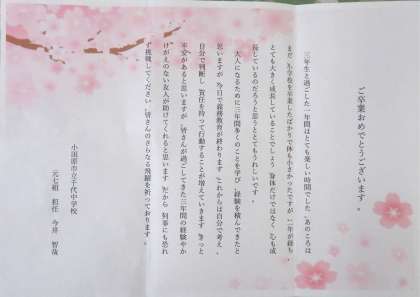 ご卒業おめでとうございます。
三年生と過ごした一年間はとても楽しい時間でした。あのころは
まだ、小学校を卒業したばかりで体も小さかったですが、二年が経ち、
とても大きく成長していることでしょう。身体だけではなく、心も成
長しているのだろうと思うととてもうれしいです。
大人になるために三年間多くのことを学び、経験を積んできたと
思いますが、今日で義務教育が終わります。これからは自分で考え、
自分で判断し、責任を持って行動することが増えていきます。きっと
不安があると思いますが、皆さんが過ごしてきた三年間の経験やか
けがえのない友人が助けてくれると思います。だから、何事にも恐れ
ず挑戦してください。皆さんのさらなる飛躍を祈っております。
小田原市立千代中学校
元七組 担任 今井 智哉